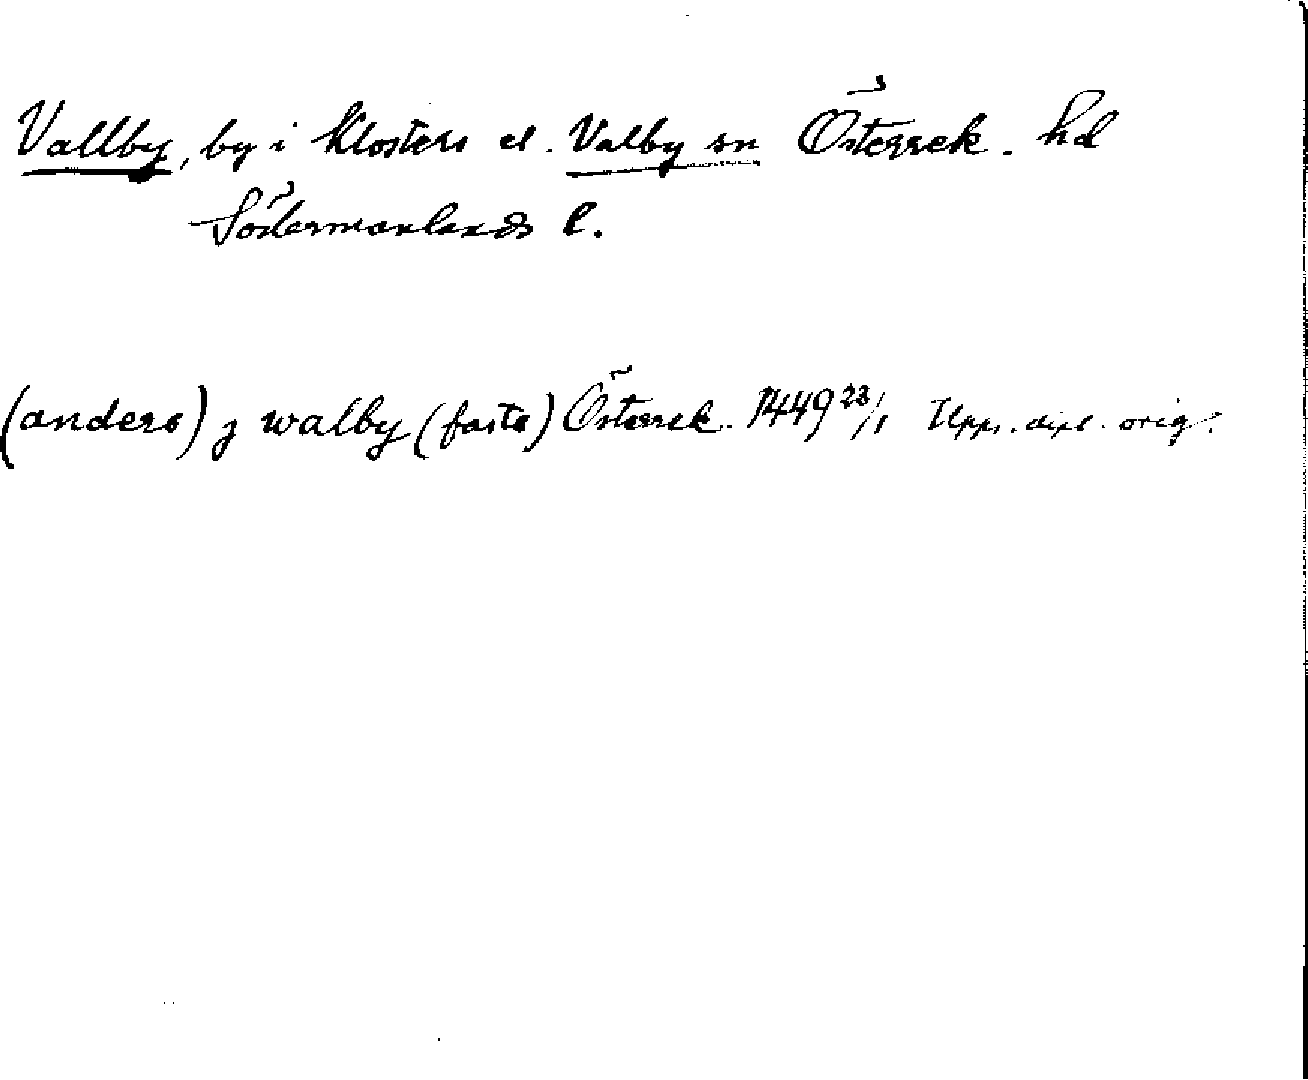 Vallby, by i Klosters el. Valby sn Österrek. hd
Södermanlands l.
(anders) j walby (faste) Österrek. 1449 23/1 Upps. dipl. orig.